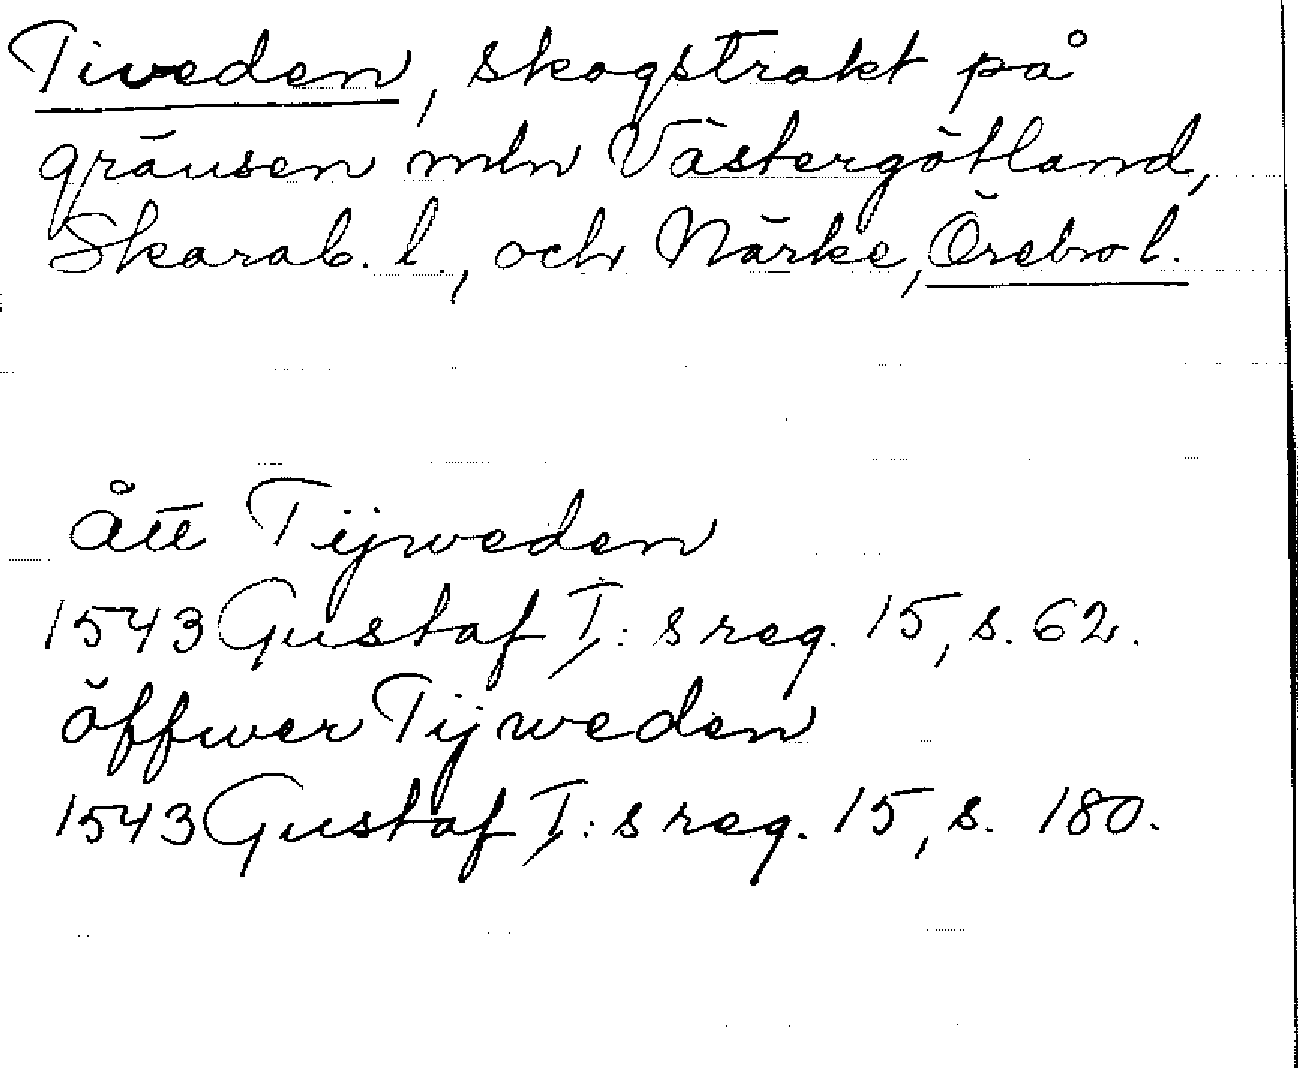 Tiveden, skogstrakt på
gränsen mln Västergötland,
Skarab. l., och Närke, Örebro l.
Ått Tijweden
1543 Gustaf I: s reg. 15, s. 62.
öffwer Tijweden
1543 Gustaf I: s reg. 15, s. 180.